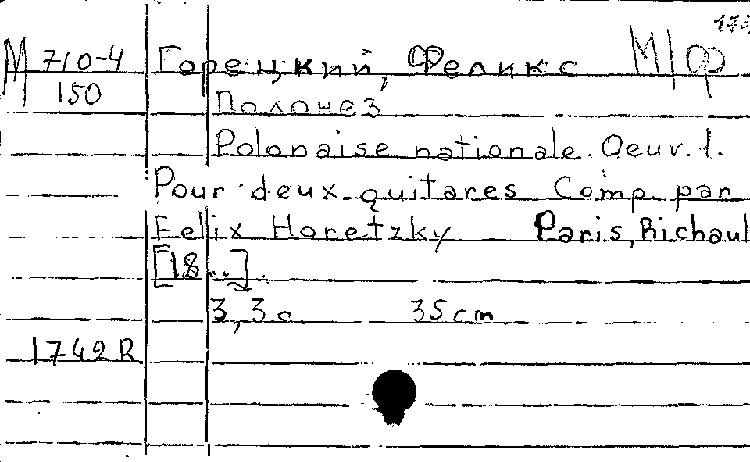 М 710-4 Горецкий, Феликс М/Ф
150 Полонез
Polonaise nationale. Oeuv. 1.
Pour deux quitares Comp. par
Felix Horetzky Paris, Richaul
[18..].
3,3 c 35 cm
1742 R